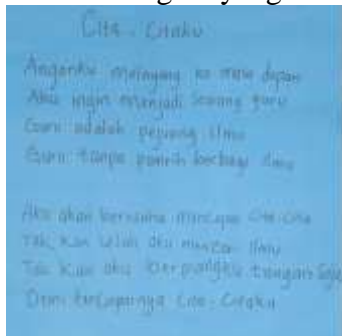 Cita - Citaku
Anganku melayang ke masa depan
Aku ingin menjadi seorang guru
Guru adalah pejuang ilmu
Guru tanpa pamrih berbagi ilmu
Aku akan berusaha mencapai cita-cita
Tak kan lelah aku mencari ilmu
Tak kan aku berpangku tangan saja
Demi tercapainya Cita-Citaku